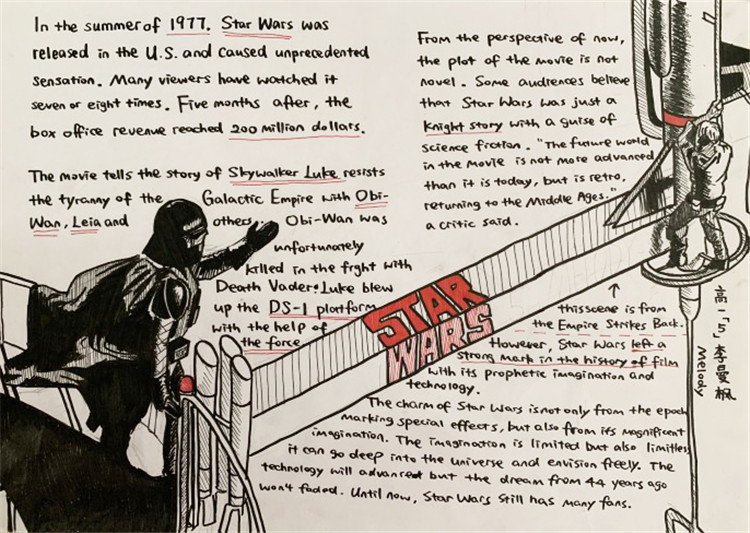 In the summer of 1977, Star Wars was
released in the U.S. and caused unprecedented
sensation. Many viewers have watched it
seven or eight times. Five months after, the
box office revenue reached 200 million dollars.
The movie tells the story of Skywalker Luke resists
the tyranny of the Galactic Empire with Obi-
Wan, Leia and others. Obi-Wan was
unfortunately
killed in the fight with
Death Vader. Luke blew
up the DS-1 platform
with the help of
the force
STAR
WARS
From the perspective of now,
the plot of the movie is not
novel. Some audiences believe
that Star Wars was just a
Knight story with a guise of
science fiction. "The future world
in the movie is not more advanced
than it is today, but is retro,
returning to the Middle Ages."
a critic said.
this scene is from
the Empire Strikes Back.
However, Star Wars left a
strong mark in the history of film
with its prophetic imagination and
technology.
The charm of Star Wars is not only from the epoch
marking special effects, but also from its magnificent
imagination. The imagination is limited but also limitless,
it can go deep into the universe and envision freely. The
technology will advanced but the dream from 44 years ago
won't faded. Until now, Star Wars still has many fans.
高一「5」李曼枫
Melody